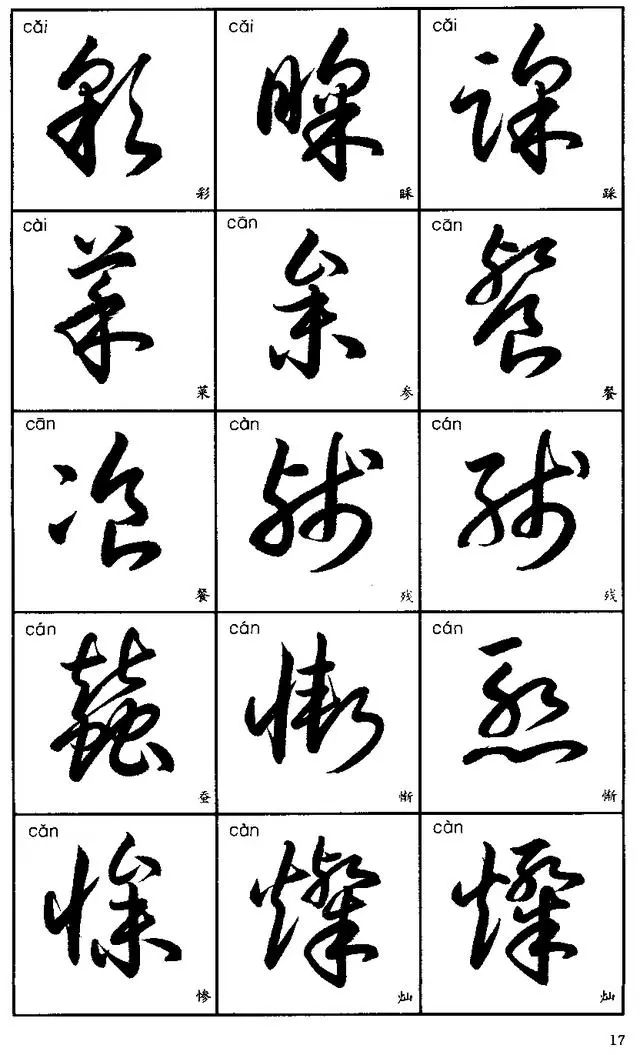 cǎi cǎi cǎi
彩 睬 踩
cài cān cān
菜 参 餐
cān càn cán
餐 残 残
cán cán cán
蚕 惭 惭
cǎn càn càn
惨 灿 灿
17